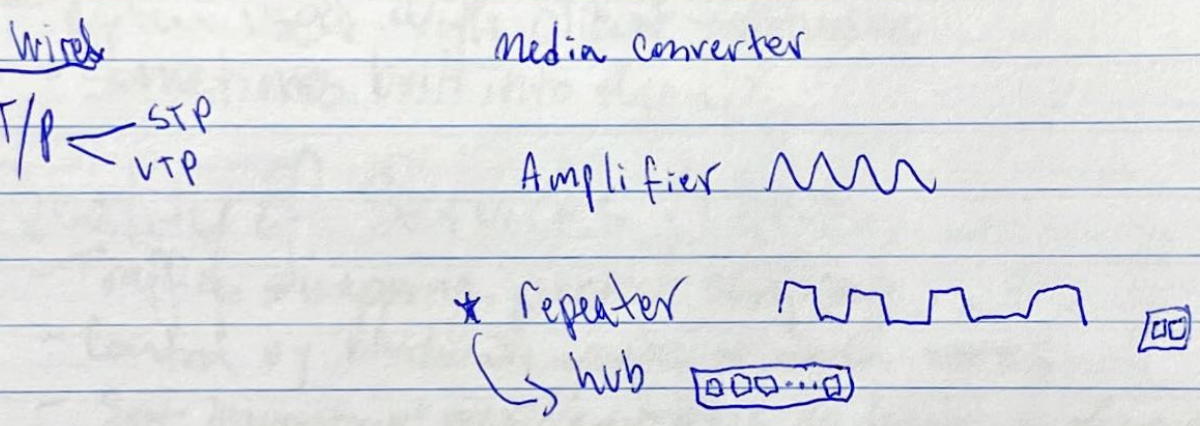 wired
T/P
STP
UTP
Media converter
Amplifier
* repeater
hub